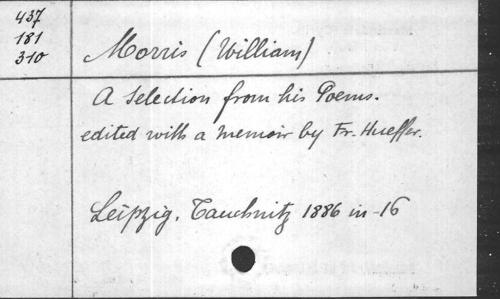 437
181
310
Morris (William)
A Selection from his Poems.
edited with a memoir by Fr. Hueffer.
Leipzig, Tauchnitz 1886 in-16